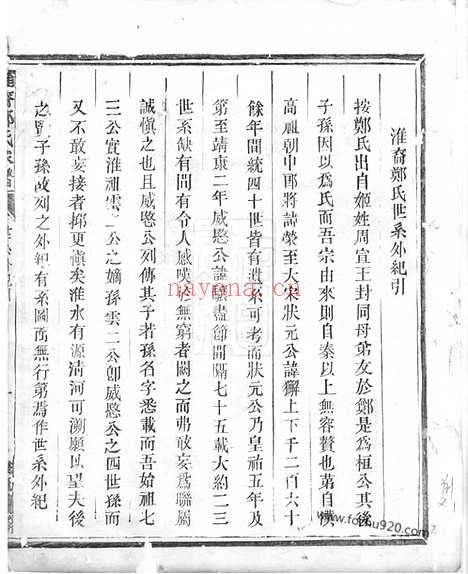 淮裔鄭氏世系外紀引
按鄭氏出自姬姓周宣王封同母弟友於鄭是爲桓公其後
子孫因以爲氏而吾宗由來則自秦以上無容贅也第自漢
高祖朝中郎將諱榮至大宋狀元公諱獬上下千二百六十
餘年間統四十世皆有遺系可考而狀元公乃皇祐五年及
第至靖康二年威愍公諱驤盡節間隔七十五載大約二三
世系缺有間有令人感嘆於無窮者闕之而弗敢妄爲聯屬
誠慎之也且威愍公列傳其子若孫名字悉載而吾始祖七
三公實淮祖雲二公之嫡孫雲二公卽威愍公之四世孫而
又不敢妄接者抑更慎矣淮水有源淸河可溯願以望夫後
之賢子孫故列之外紀有系圖而無行第爲作世系外紀
nayma.cn
www.fozhu920.com